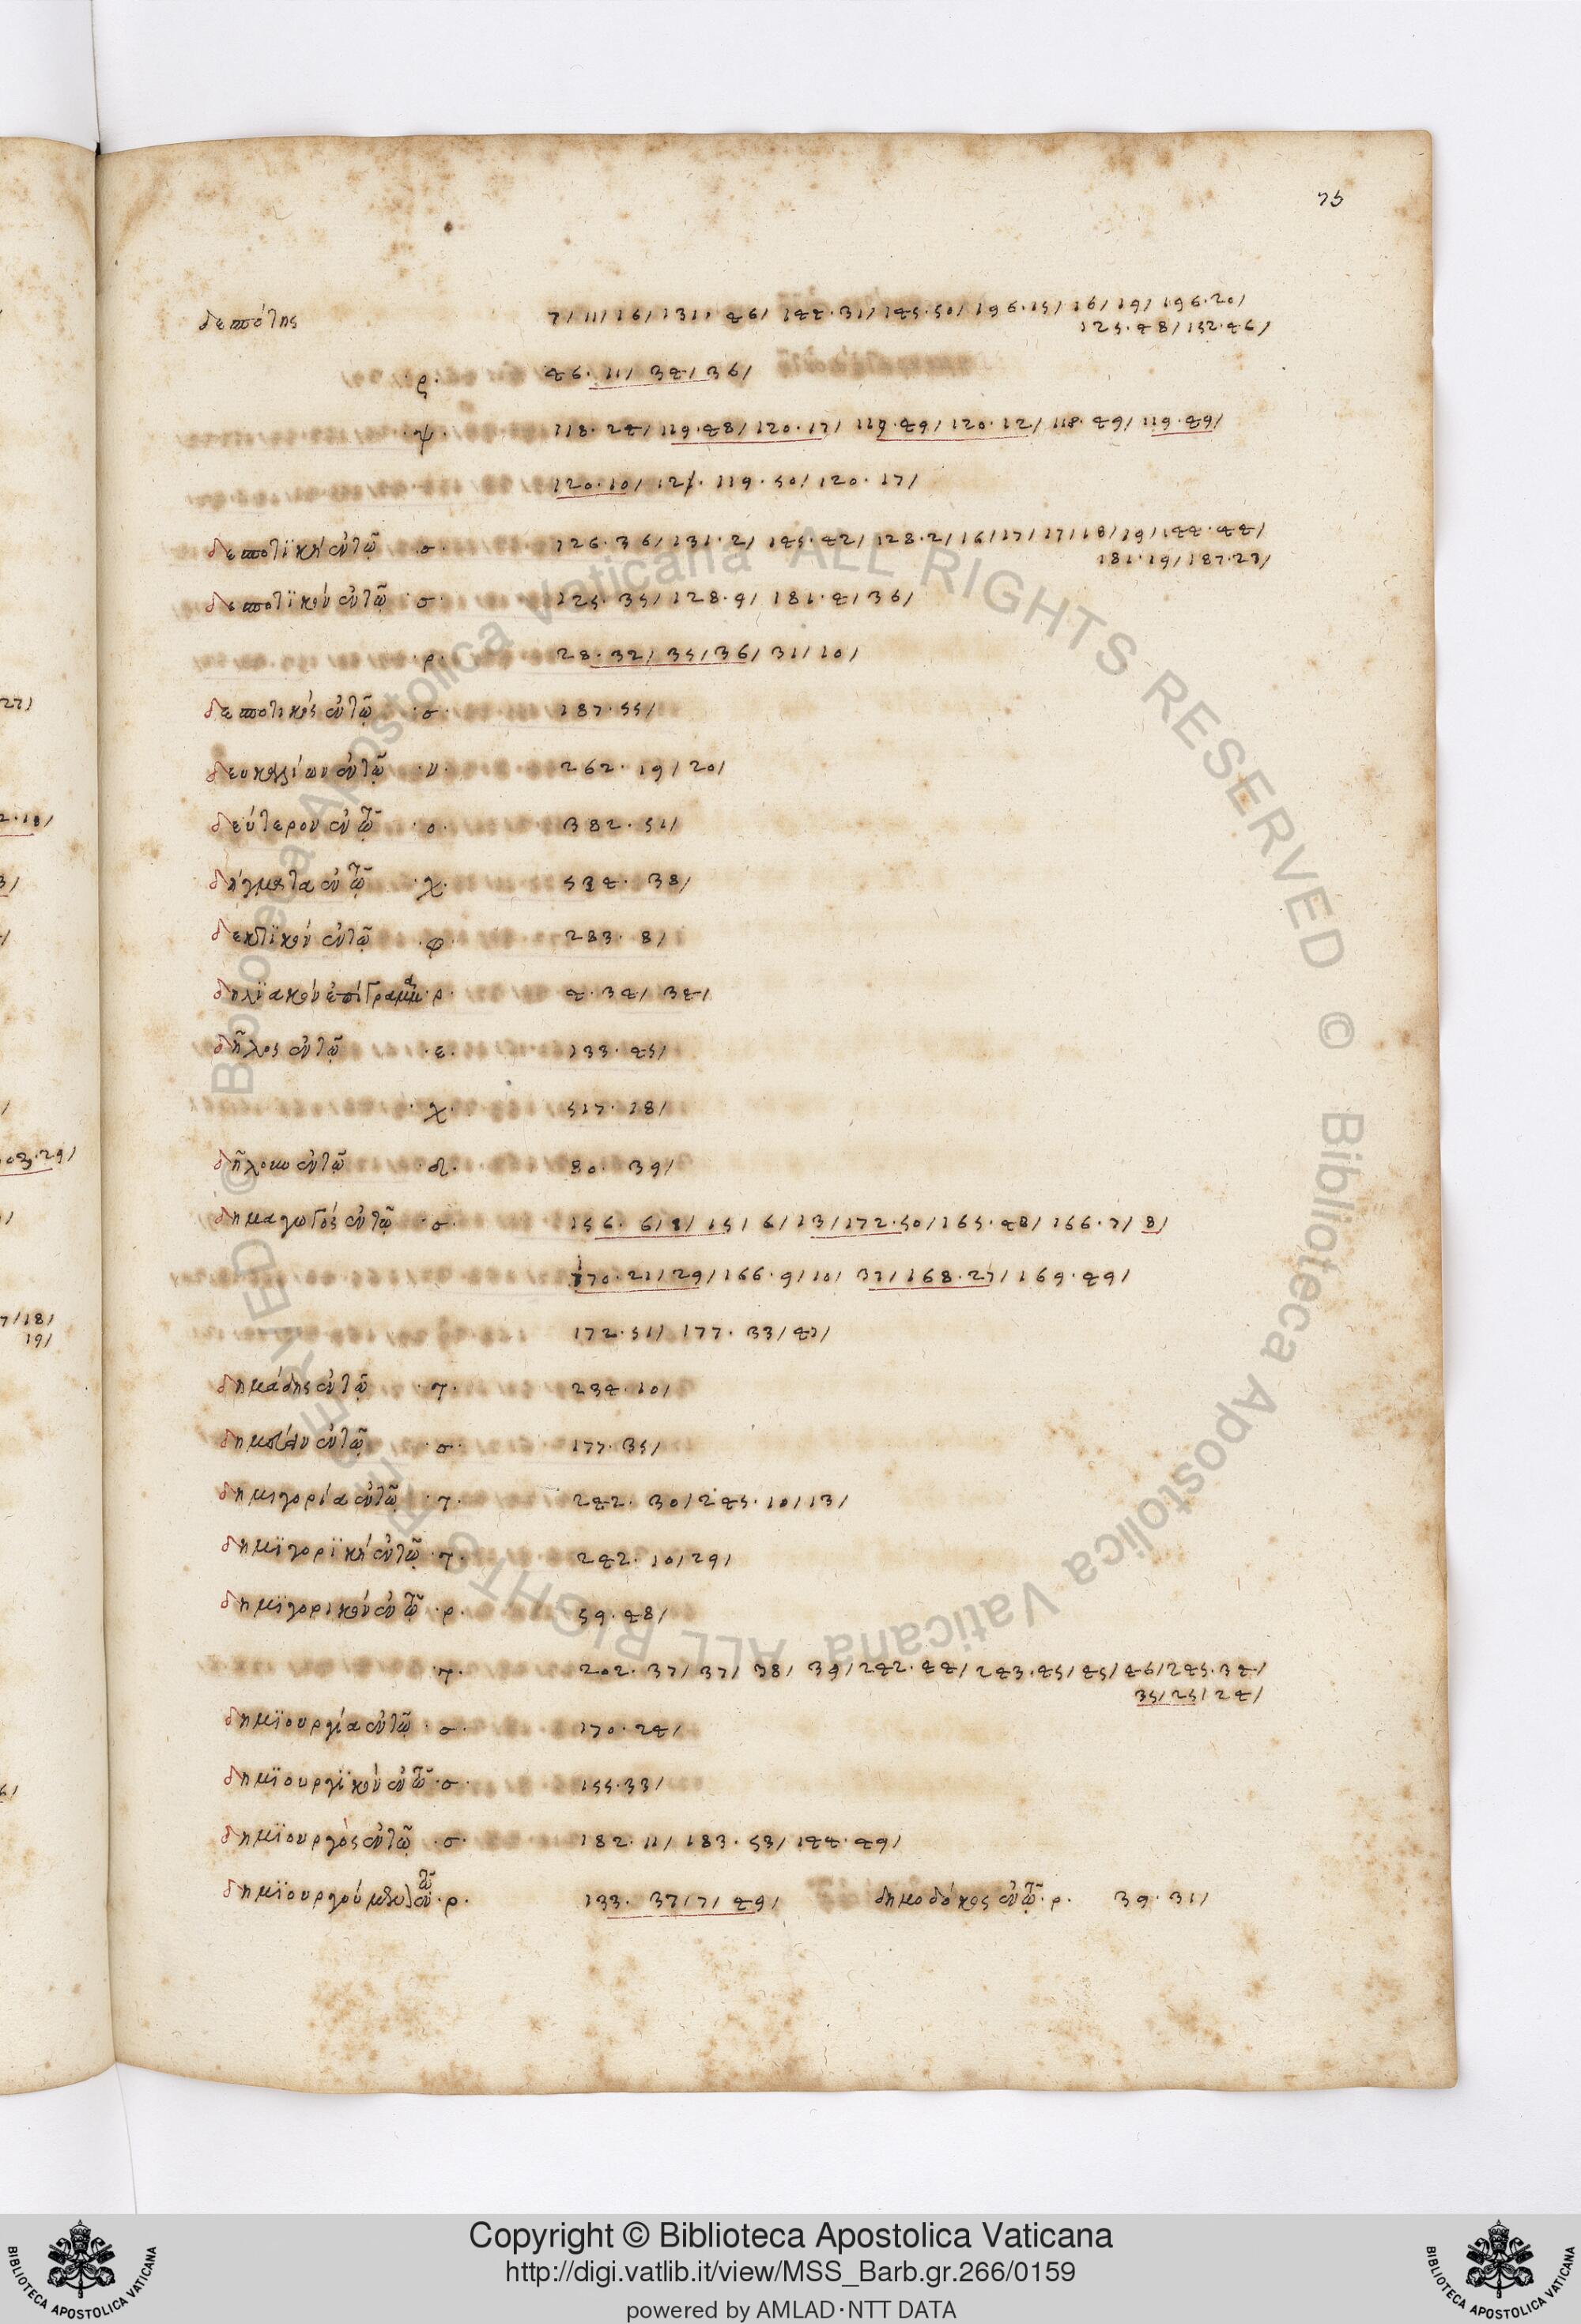 75
δεσπότης 7/ 11/ 16/ 131· 46/ 144·31/ 145·50/ 196·15/ 16/ 19/ 196·20/
125·48/ 152·46/
·ρ· 46·11/ 34/ 36/
·ψ· 118·24/ 119·48/ 120·17/ 119·49/ 120·12/ 118·49/ 119·49/
120·10/ 119·50/ 120·17/
δεσποτϊκὴ ἐν τῷ ·σ· 126·36/ 131·2/ 145·42/ 128·2/ 16/ 17/ 17/ 18/ 19/ 144·44/
181·19/ 187·23/
δεσποτϊκὸν ἐν τῷ ·σ· 125·35/ 128·9/ 181·4/ 36/
·ρ· 28·32/ 35/ 36/ 31/ 10/
δεσποτικὸς ἐν τῷ ·σ· 187·55/
δευκαλίων ἐν τῷ ·ν· 262·19/ 20/
δεύτερον ἐν τῷ ·ο· 382·51/
δήγματα ἐν τῷ ·χ· 534·38/
δεκτϊκὸν ἐν τῷ ·φ· 283·8/
δηλϊακὸν ἐπίγραμμα ·ρ· 4·34/ 34/
δῆλος ἐν τῷ ·ε· 133·45/
·χ· 517·18/
ἐν τῷ ·δ· 80·39/
δημαγωγὸς ἐν τῷ ·σ· 156·6/ 8/ 15/ 6/ 13/ 172·50/ 165·48/ 166·7/ 8/
170·21/ 29/ 166·9/ 10/ 37/ 168·27/ 169·49/
172·51/ 177·33/ 47/
δημάδης ἐν τῷ ·τ· 234·10/
ἐν τῷ ·σ· 177·35/
δημηγορία ἐν τῷ ·τ· 242·30/ 245·10/ 13/
δημϊγορϊκὴ ἐν τῷ ·τ· 242·10/ 29/
δημϊγορικὸν ἐν τῷ ·ρ· 59·48/
·τ· 202·37/ 37/ 38/ 39/ 242·44/ 243·45/ 45/ 46/ 245·34/
35/ 25/ 24/
δημϊουργία ἐν τῷ ·σ· 170·24/
δημϊουργϊκὸν ἐν τῷ ·σ· 155·33/
δημϊουργὸς ἐν τῷ ·σ· 182·11/ 183·53/ 144·49/
δημϊουργοὺ ἐν τῷ ·ρ· 133·37/ 7/ 49/ δημοδόκος ἐν τῷ ·ρ· 39·31/
27/
2·18/
03·29/
7/ 18/
19/
Copyright © Biblioteca Apostolica Vaticana
http://digi.vatlib.it/view/MSS_Barb.gr.266/0159
powered by AMLAD·NTT DATA
BIBLIOTECA APOSTOLICA VATICANA
BIBLIOTECA APOSTOLICA VATICANA
© Biblioteca Apostolica Vaticana ALL RIGHTS RESERVED © Biblioteca Apostolica Vaticana ALL RIGHTS RESERVED